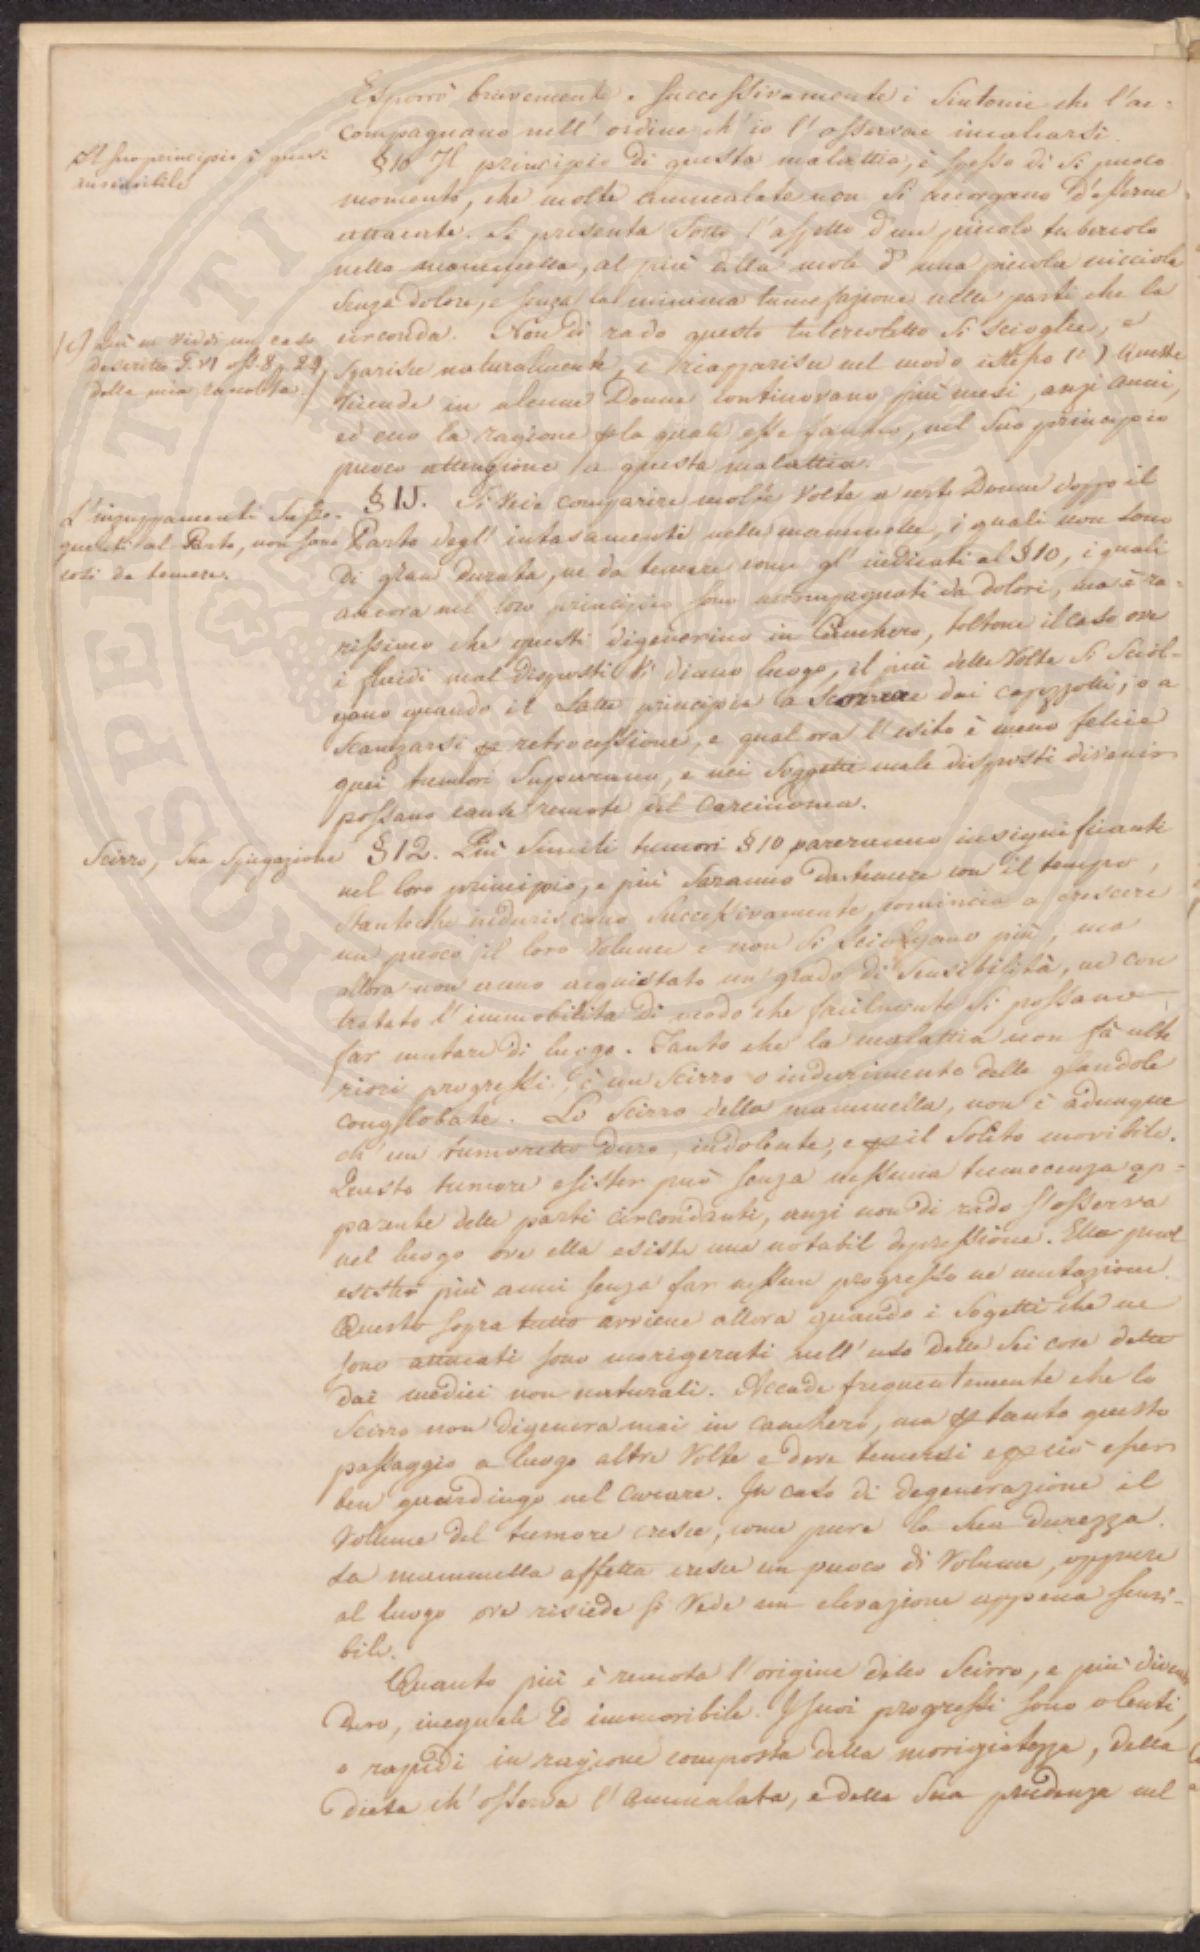 Esporrò brievemente e successivamente i Sintomi che l'ac=
compagnano nell'ordine ch'io l'osservai incalzarsi.
Il suo principio è quasi
insensibile
§10 Il principio di questa malattia, è spesso di sì puoco
momento, che molte ammalate non si accorgano d'esserne
attaccate. Si presenta sotto l'aspetto d'un piccolo tubercolo
nella mammella, al più della mole d'una piccola nicciola
senza dolore, e senza la minima tumefazione nelle parti che la
circonda. Non di rado questo tubercoletto si scioglie, e
(c) Più ne viddi un caso
descritto T. VI oss. 8 p. 29
della mia raccolta.
sparisce naturalmente, e riapparisce nel modo istesso (c) Queste
vicende in alcune Donne continovano più mesi, anzi anni,
ed ecco la ragione p la quale esse fanno, nel suo principio
puoco attenzione a questa malattia.
L'inzuppamenti susse-
guenti al Parto, non sono
così da temere.
§ 15. Si vede comparire molte volte a certe Donne doppo il
Parto degl'intasamenti nelle mammelle, i quali non sono
di gran durata, ne da temere come gl'indicati al §10, i quali
ancora nel loro principio sono accompagnati da dolori, ma è ra=
rissimo che questi digenerino in Canchero, toltone il caso ove
i fluidi mal disposti vi diano luogo, il più delle Volte si sciol-
gono quando il Latte principia a scorrere dai capezzoli, o a
scanzarsi p retrocessione, e qual ora l'esito è meno felice
quei tumori suppurano, e nei soggetti male disposti divenir
possano cause remote del Carcinoma.
Scirro, sua spiegazione
§12. Più simili tumori §10 pareranno insignificanti
nel loro principio, e più saranno da temere con il tempo,
stantoche induriscano successivamente, comincia a crescere
un puoco il loro Volume e non si sciolgano più, ma
allora non anno acquistato un grado di sensibilità, ne con
tratato l'immobilità di modo che facilmente si possano
far mutare di luogo. Tanto che la malattia non fà ulte
riori progressi, è un Scirro o indurimento delle glandole
conglobate. Lo Scirro della mammella, non è adunque
ch'un tumoretto duro, indolente, e p il solito movibile.
Questo tumore esister può senza nessuna tumecenza ap=
parente delle parti circondanti, anzi non di rado s'osserva
nel luogo ove ella esiste una notabil depressione. Ella puol
esister più anni senza far nessun progresso ne mutazione.
Questo sopra tutto avviene allora quando i sogetti che ne
sono attaccati sono morigerati nell'uso delle sei cose dette
dai medici non naturali. Accade frequentemente che lo
Scirro non digenera mai in canchero, ma p tanto questo
passaggio a luogo altre Volte e deve temersi e p ciò esser
ben guardingo nel curare. In caso di degenerazione il
Volume del tumore cresce, come pure la sua durezza.
La mammella affetta cresce un puoco di Volume, oppure
al luogo ove risiede si Vede un elevazione appena sensi-
bile.
Quanto più è remota l'origine dello Scirro, e più diviene
duro, ineguale ed immovibile. I suoi progressi sono o lenti,
o rapidi in ragione composta della morigiatezza, della
dieta ch'osserva l'Ammalata, e della sua prudenza nel